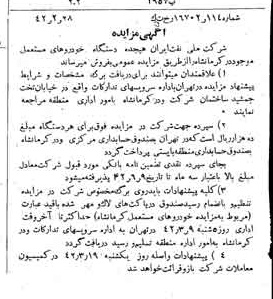 شماره ۱۶۷۰۲٫۱۱۴
۲۸٫۲٫۴۲
آگهی مزایده
شرکت ملی نفت ایران هیجده دستگاه خودروهای مستعمل
موجود در کرمانشاه را از طریق مزایده عمومی بفروش میرساند
۱) علاقمندان میتوانند برای دریافت برگه مشخصات و شرایط
پیشنهاد مزایده در تهران باداره سرویسهای تدارکات واقع در خیابان تخت
جمشید ساختمان شرکت و در کرمانشاه بامور اداری منطقه مراجعه
نمایند
۲) سپرده جهت شرکت در مزایده فوق برای هر دستگاه مبلغ
ده هزار ریال است که در تهران بصندوق حسابداری مرکزی و در کرمانشاه
بصندوق حسابداری منطقه بایستی پرداخت گردد
بجای سپرده نقدی تضمین نامه بانکی مورد قبول شرکت معادل
مبلغ بالا باعتبار سه ماه تا تاریخ ۹٫۶٫۴۲ پذیرفته میشود
۳) کلیه پیشنهادات باید روی برگه مخصوص شرکت در مزایده
تنظیم و بانضمام رسید صندوق در پاکت‌های لاک و مهر شده با قید عبارت
(مربوط به مزایده خودروهای مستعمل کرمانشاه) حداکثر تا آخر وقت
اداری روز ۵شنبه ۹٫۳٫۴۲ در تهران به اداره سرویسهای تدارکات و در
کرمانشاه به امور اداره منطقه تسلیم و رسید دریافت گردد
۴) پیشنهادات واصله روز یکشنبه ۱۹٫۳٫۴۲ در کمیسیون
معاملات شرکت باز و قرائت خواهد شد